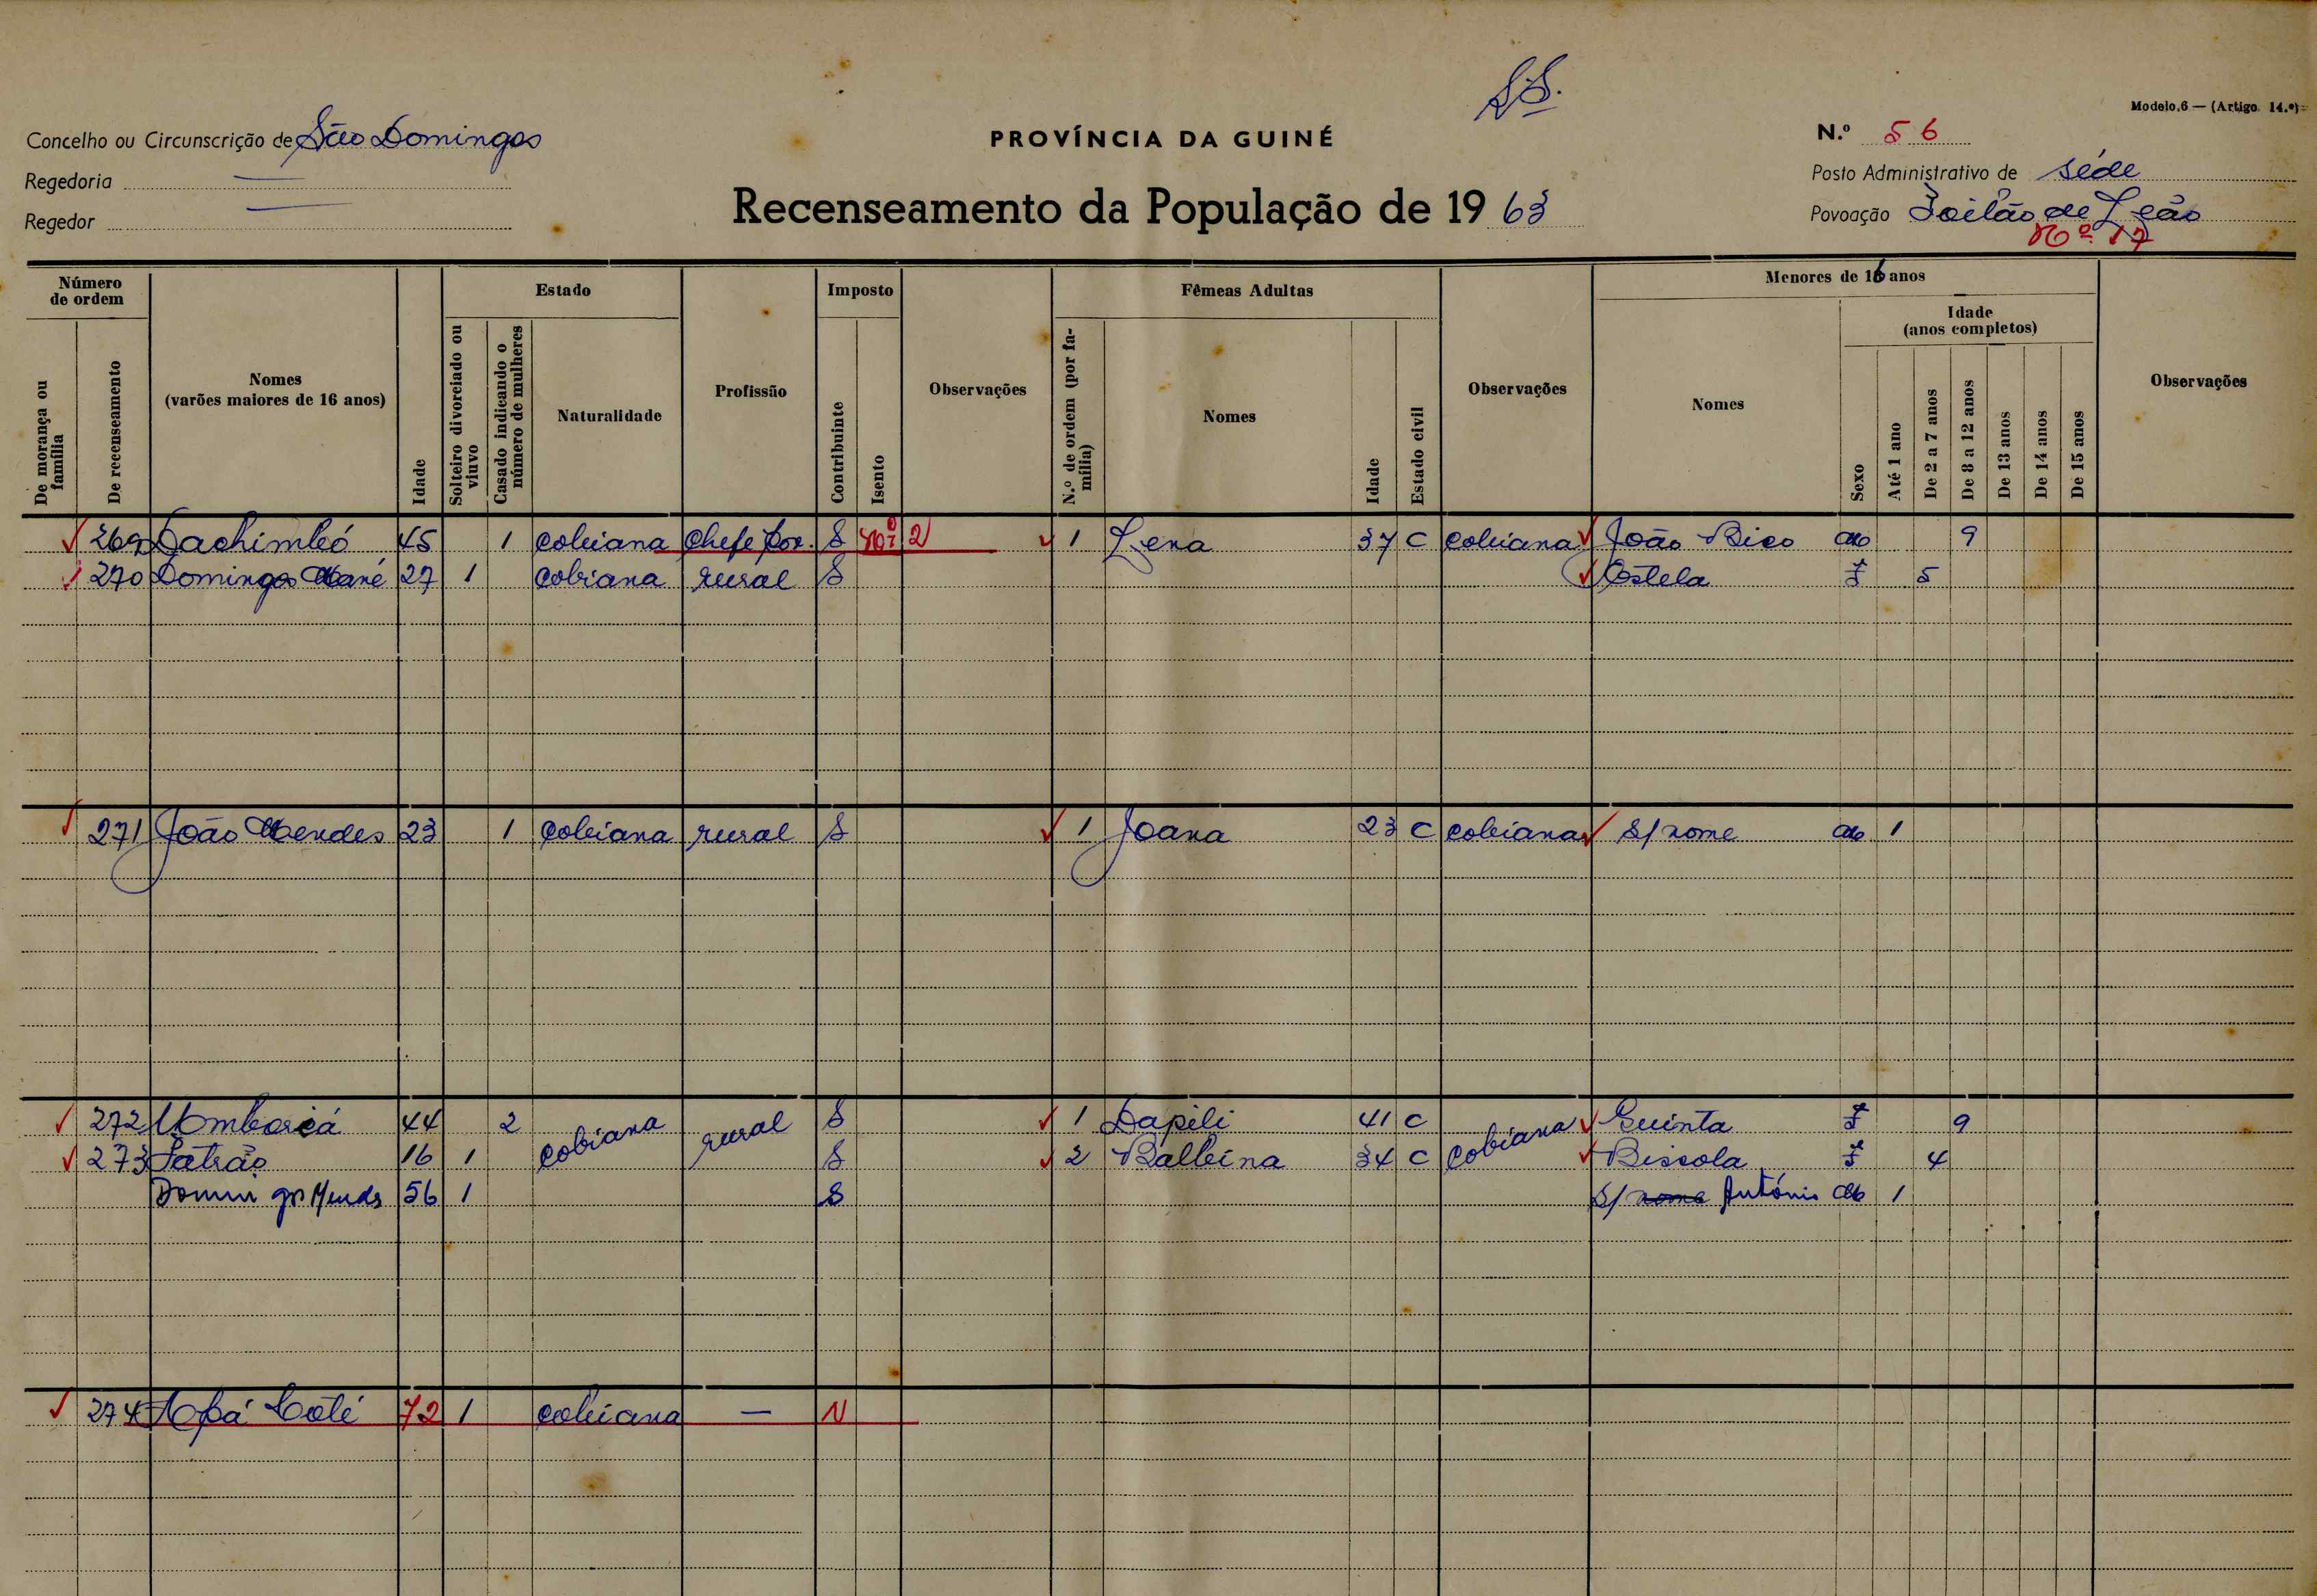 Modelo.6 — (Artigo 14.º)
Concelho ou Circunscrição de São Domingos
PROVÍNCIA DA GUINÉ
N.º 56
Regedoria —
Posto Administrativo de séde
Regedor —
Recenseamento da População de 1963
Povoação de Leão
Nº 17
Número de ordem
De morança ou família
De recenseamento
Nomes (varões maiores de 16 anos)
Idade
Estado
Solteiro divorciado ou viuvo
Casado indicando o número de mulheres
Naturalidade
Profissão
Imposto
Contribuinte
Isento
Observações
Fêmeas Adultas
N.º de ordem (por família)
Nomes
Idade
Estado civil
Observações
Menores de 16 anos
Nomes
Sexo
Idade (anos completos)
Até 1 ano
De 2 a 7 anos
De 8 a 12 anos
De 13 anos
De 14 anos
De 15 anos
Observações
269 Dachimbó 45 1 cobiana chefe pov. S Nº 2 1 Lena 37 C cobiana João Bico M 9
270 Domingos Mané 27 1 cobiana rural S Estela F 5
271 João Mendes 23 1 cobiana rural S 1 Joana 23 C cobiana S/nome M 1
272 44 2 cobiana rural S 1 Dapili 41 C cobiana Guinta F 9
273 16 1 S 2 Balbina 34 C Bissola F 4
Domingos Mendes 56 1 S S/ nome António M 1
274 72 1 cobiana — N